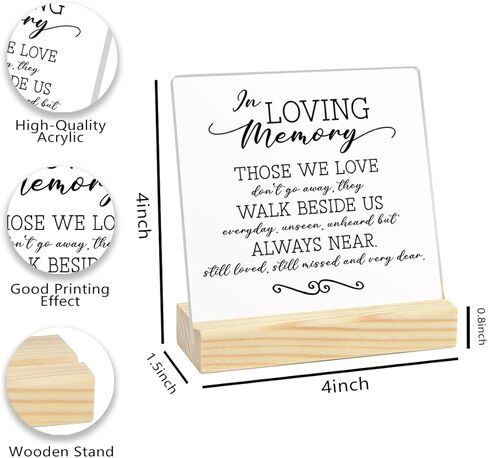 In LOVING
Memory
THOSE WE LOVE
don't go away, they
WALK BESIDE US
everyday, unseen, unheard but
ALWAYS NEAR.
still loved, still missed and very dear.
4inch
0.8inch
1.5inch
4inch
ry
E LOVE
, they
DE US
ard, but
High-Quality
Acrylic
emory
HOSE WE LO
on't go away, the
K BESID
Good Printing
Effect
Wooden Stand